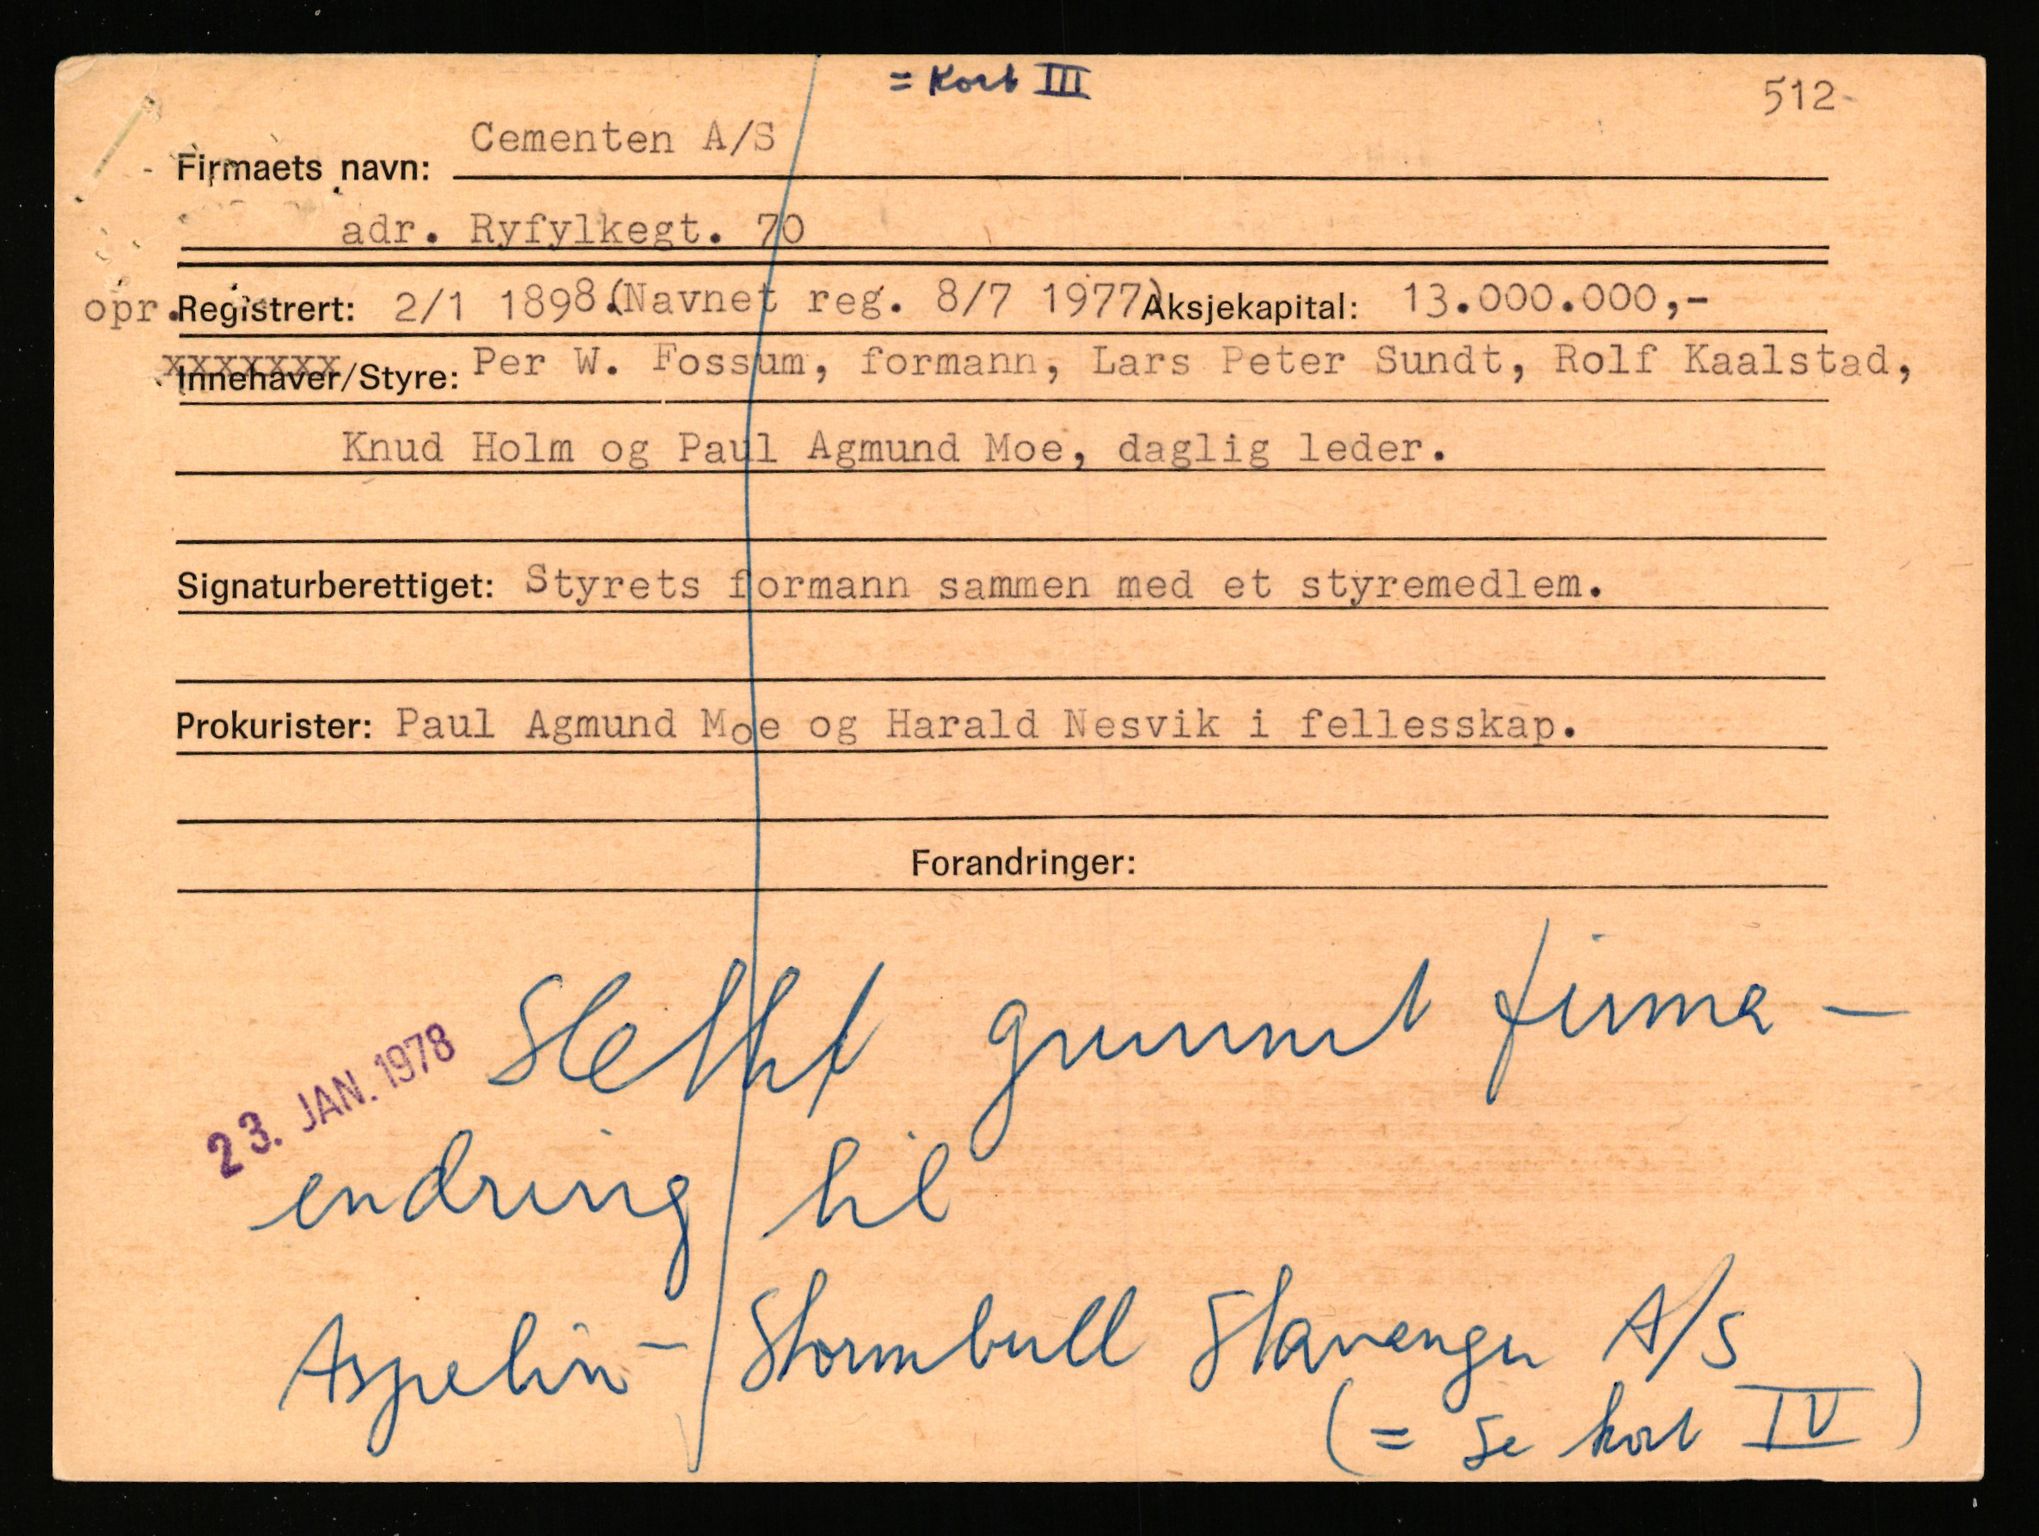 = Kort III
512
Firmaets navn: Cementen A/S
adr. Ryfylkegt. 70
opr. Registrert: 2/1 1898.(Navnet reg. 8/7 1977) Aksjekapital: 13.000.000,-
xxxxxxx
Innehaver/Styre: Per W. Fossum, formann, Lars Peter Sundt, Rolf Kaalstad,
Knud Holm og Paul Agmund Moe, daglig leder.
Signaturberettiget: Styrets formann sammen med et styremedlem.
Prokurister: Paul Agmund Moe og Harald Nesvik i fellesskap.
Forandringer:
23. JAN. 1978
Slettet grunnet firma-
endring til
Aspelin - Stormbull Stavanger A/S
(= se kort IV)